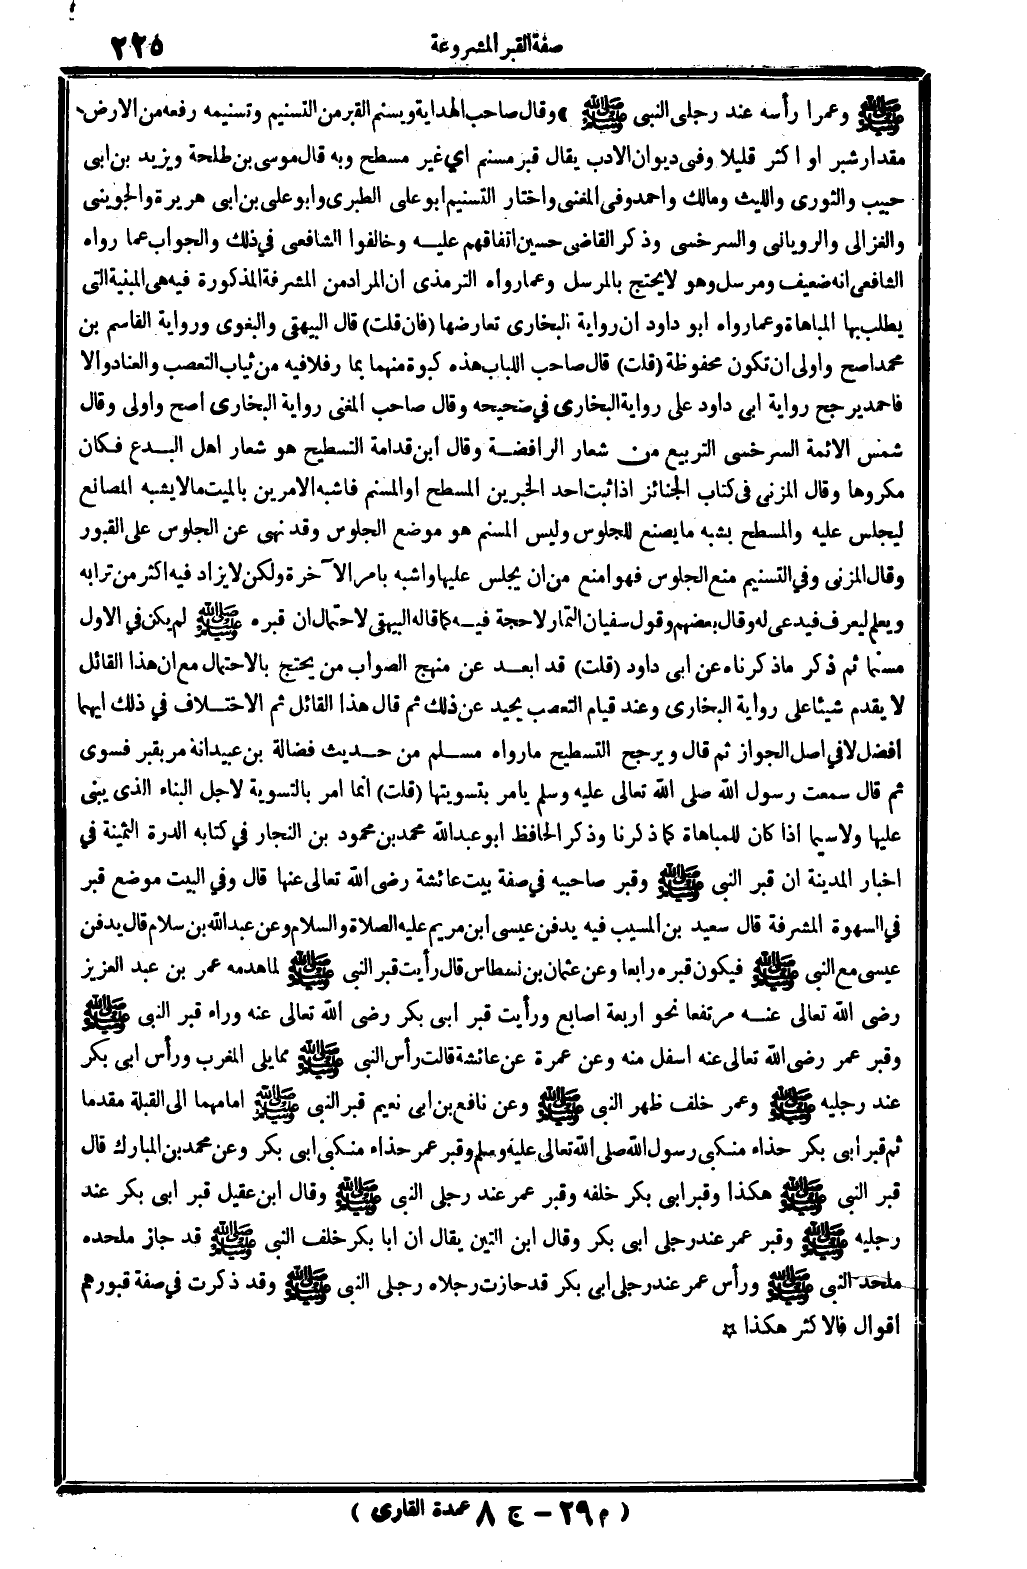 صفة القبر المشروعة
٢٢٥
ﷺ وعمرا رأسه عند رجلى النبى ﷺ » وقال صاحب الهداية ويسنم القبر من التسنيم وتسنيمه رفعه من الارض
مقدار شبر او اكثر قليلا وفى ديوان الادب يقال قبر مسنم اي غير مسطح وبه قال موسى بن طلحة ويزيد بن ابى
حبيب والثورى والليث ومالك واحمد وفى المغنى واختار التسنيم ابو على الطبرى وابو على بن ابى هريرة والجوينى
والغزالى والرويانى والسرخسى وذكر القاضى حسين اتفاقهم عليه وخالفوا الشافعى في ذلك والجواب عما رواه
الشافعى انه ضعيف ومرسل وهو لا يحتج بالمرسل وعما رواه الترمذى ان المراد من المشرفة المذكورة فيه هى المبنية التى
يطلب بها المباهاة وعما رواه ابو داود ان رواية البخارى تعارضها (فان قلت) قال البيهقى والبغوى ورواية القاسم بن
محمد اصح واولى ان تكون محفوظة (قلت) قال صاحب اللباب هذه كبوة منهما بما رفلا فيه من ثياب التعصب والعناد والا
فاحمد يرجح رواية ابى داود على رواية البخارى في صحيحه وقال صاحب المغنى رواية البخارى أصح واولى وقال
شمس الائمة السرخسى التربيع من شعار الرافضة وقال ابن قدامة التسطيح هو شعار اهل البدع فكان
مكروها وقال المزنى فى كتاب الجنائز اذا ثبت احد الخبرين المسطح او المسنم فاشبه الامرين بالميت ما لا يشبه المصانع
ليجلس عليه والمسطح يشبه ما يصنع للجلوس وليس المسنم هو موضع الجلوس وقد نهى عن الجلوس على القبور
وقال المزنى وفى التسنيم منع الجلوس فهو امنع من ان يجلس عليها واشبه بامر الآخرة ولكن لا يزاد فيه اكثر من ترابه
ويعلم ليعرف فيدعى له وقال بعضهم وقول سفيان التمار لا حجة فيه كما قاله البيهقى لاحتمال ان قبره ﷺ لم يكن فى الاول
مسنما ثم ذكر ما ذكرناه عن ابى داود (قلت) قد ابعد عن منهج الصواب من يحتج بالاحتمال مع ان هذا القائل
لا يقدم شيئا على رواية البخارى وعند قيام التعصب يحيد عن ذلك ثم قال هذا القائل ثم الاختلاف في ذلك ايهما
افضل لا في اصل الجواز ثم قال ويرجح التسطيح ما رواه مسلم من حديث فضالة بن عبيد انه مر بقبر فسوى
ثم قال سمعت رسول الله صلى الله تعالى عليه وسلم يامر بتسويتها (قلت) انما امر بالتسوية لاجل البناء الذى يبنى
عليها ولاسيما اذا كان للمباهاة كما ذكرنا وذكر الحافظ ابو عبدالله محمد بن محمود بن النجار في كتابه الدرة الثمينة في
اخبار المدينة ان قبر النبى ﷺ وقبر صاحبيه في صفة بيت عائشة رضى الله تعالى عنها قال وفي البيت موضع قبر
في السهوة المشرفة قال سعيد بن المسيب فيه يدفن عيسى ابن مريم عليه الصلاة والسلام وعن عبدالله بن سلام قال يدفن
عيسى مع النبى ﷺ فيكون قبره رابعا وعن عثمان بن نسطاس قال رأيت قبر النبى ﷺ لما هدمه عمر بن عبد العزيز
رضى الله تعالى عنه مرتفعا نحو اربعة اصابع ورأيت قبر ابى بكر رضى الله تعالى عنه وراه قبر النبى ﷺ
وقبر عمر رضى الله تعالى عنه اسفل منه وعن عمرة عن عائشة قالت رأس النبى ﷺ مما يلى المغرب ورأس ابى بكر
عند رجليه ﷺ وعمر خلف ظهر النبى ﷺ وعن نافع بن ابى نعيم قبر النبى ﷺ امامهما الى القبلة مقدما
ثم قبر أبى بكر حذاء منكبى رسول الله صلى الله تعالى عليه وسلم وقبر عمر حذاء منكبى ابى بكر وعن محمد بن المبارك قال
قبر النبى ﷺ هكذا وقبر ابى بكر خلفه وقبر عمر عند رجلى النبى ﷺ وقال ابن عقيل قبر ابى بكر عند
رجليه ﷺ وقبر عمر عند رجلى ابى بكر وقال ابن التين يقال ان ابا بكر خلف النبى ﷺ قد جاز ملحده
ملحد النبى ﷺ ورأس عمر عند رجلى ابى بكر قد حازت رجلاه رجلى النبى ﷺ وقد ذكرت في صفة قبورهم
اقوال فالاكثر هكذا ☆
( م ٢٩ – ج ٨ عمدة القارى )